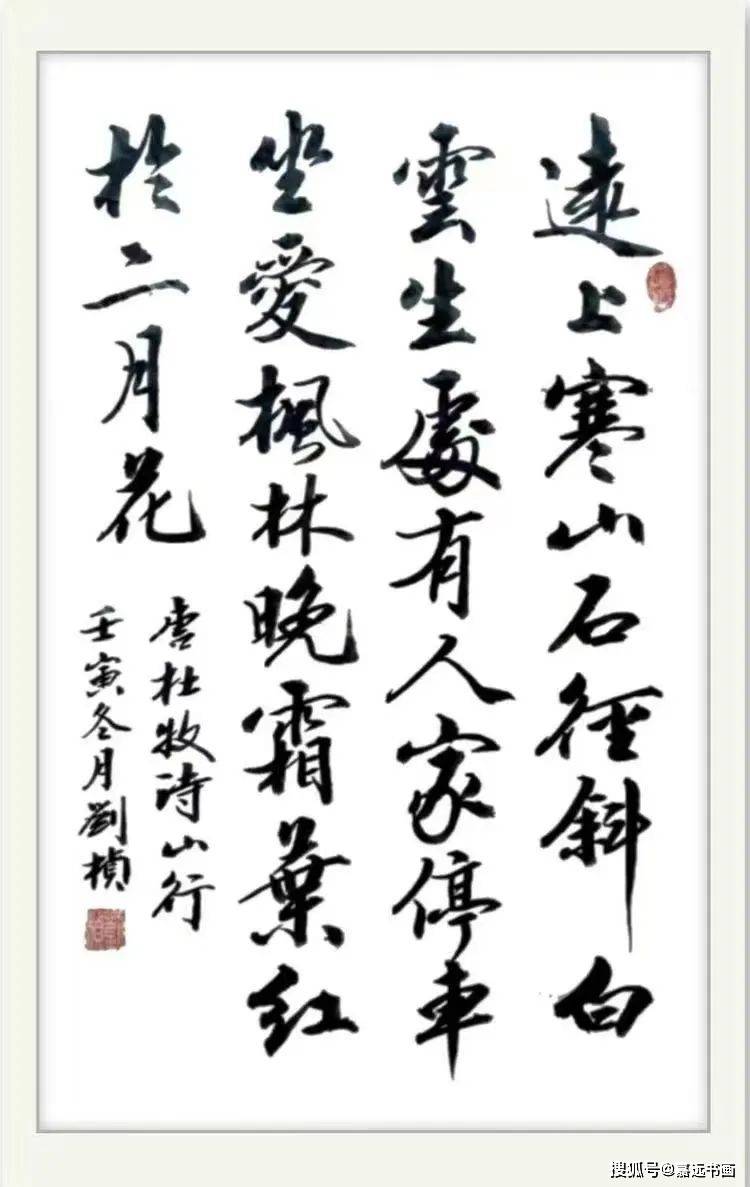 遠上寒山石徑斜白
雲生處有人家停車
坐愛楓林晚霜葉紅
於二月花
唐杜牧詩山行
壬寅冬月劉楨
搜狐号@嘉远书画